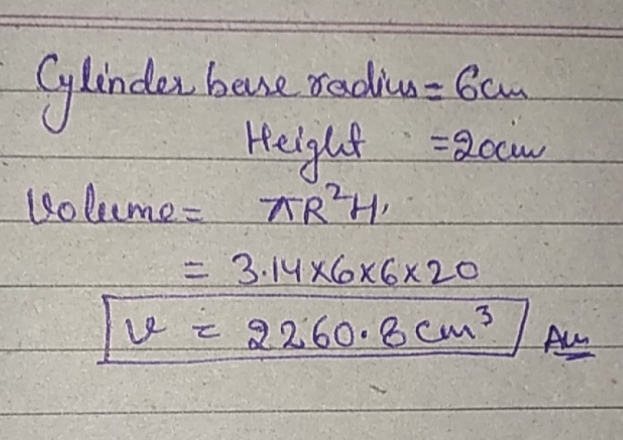 Cylinder base radius = 6cm
Height = 20cm
Volume = πR²H
= 3.14×6×6×20
v = 2260.8 cm³ Ans